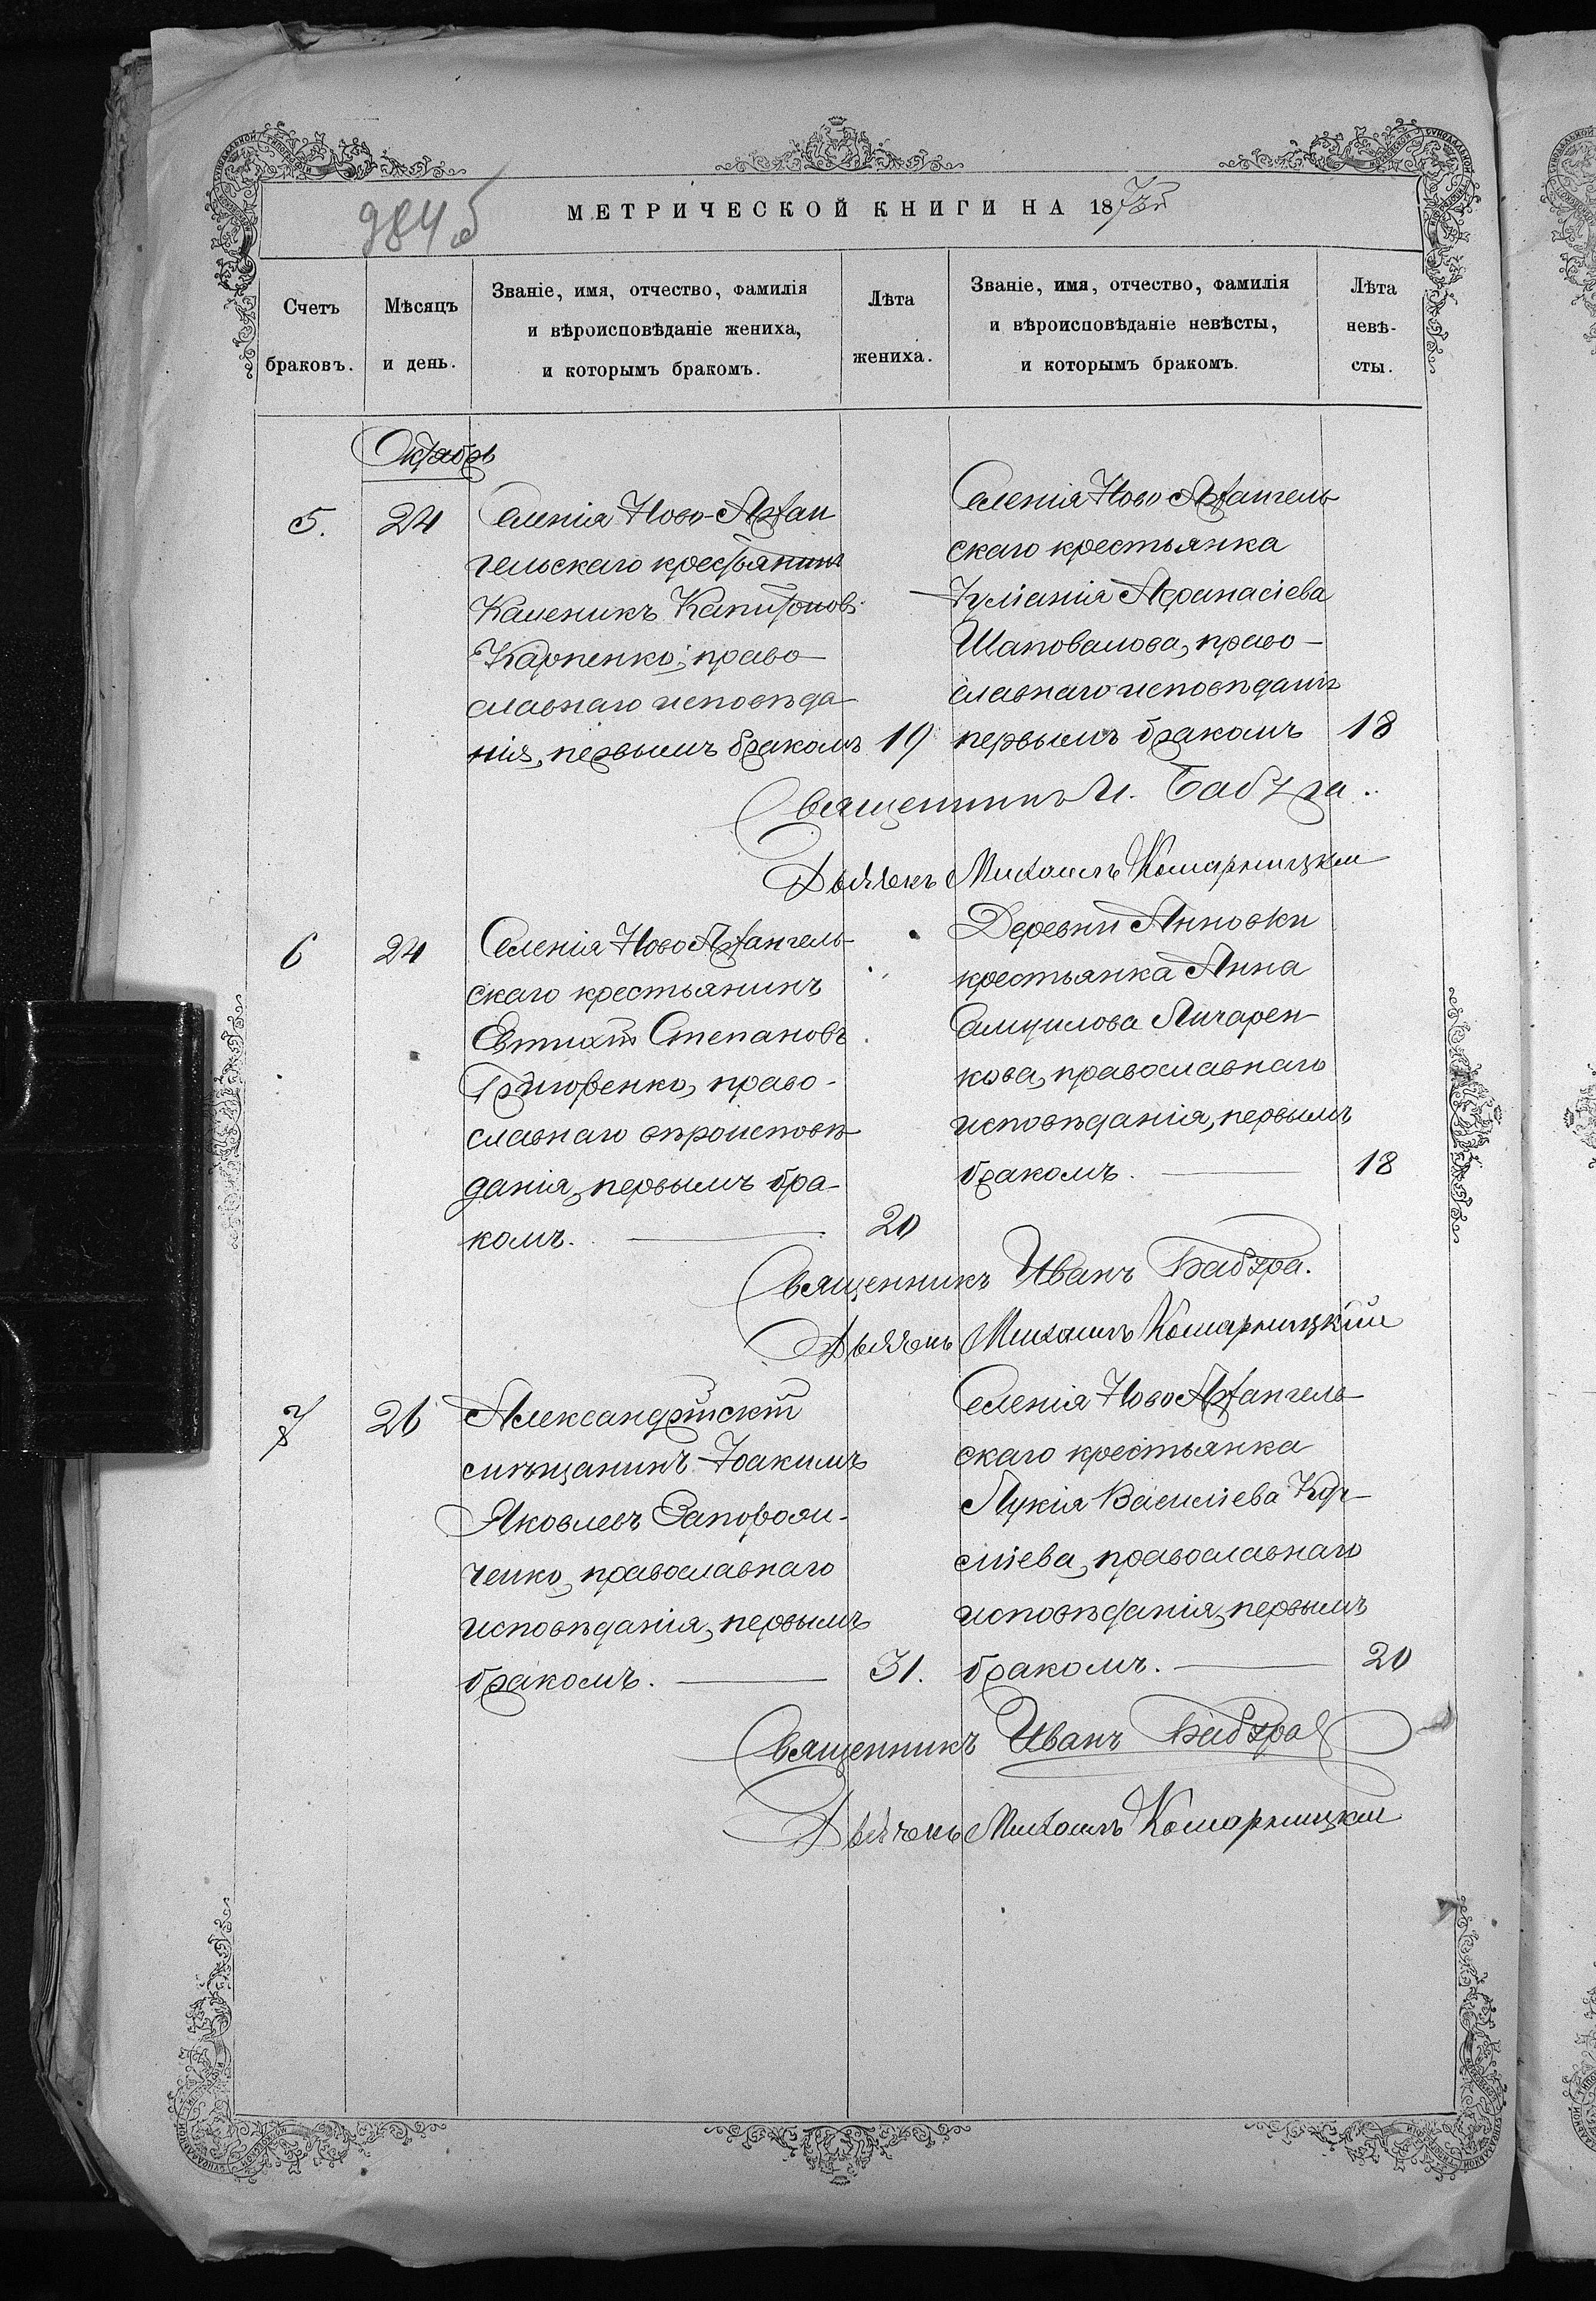 984 б
МЕТРИЧЕСКОЙ КНИГИ НА 18
Счетъ браковъ.
Мѣсяцъ и день.
Званіе, имя, отчество, фамилія
и вѣроисповѣданіе жениха,
и которымъ бракомъ.
Лѣта
жениха.
Званіе, имя, отчество, фамилія
и вѣроисповѣданіе невѣсты,
и которымъ бракомъ.
Лѣта
невѣ-
сты.
Октябрь
5.
24
Селенія Ново-Архан
гельскаго крестьянинъ
Каленикъ Капитоновъ
Карпенко, право
славнаго исповѣда
нія, первымъ бракомъ
19
Селенія Ново Архангель
скаго крестьянка
Іуліанія Аѳанасіева
Шаповалова, право-
славнаго исповѣданія
первымъ бракомъ
18
Священникъ И. Бабура.
Дьячекъ Михаилъ Комарницкій
6
24
Селенія Ново Архангель-
скаго крестьянинъ
Евтихій Степановъ
Григоренко, право-
славнаго вѣроисповѣ
данія, первымъ бра-
комъ.
20
Деревни Анновки
крестьянка Анна
Самуилова
кова, православнаго
исповѣданія, первымъ
бракомъ.
18
Священникъ Иванъ Бабура.
Дьячекъ Михаилъ Комарницкій
7
26
Александрійскій
мѣщанинъ Іоакимъ
Яковлевъ Запорожи-
ченко, православнаго
исповѣданія, первымъ
бракомъ.
31.
Селенія Ново Архангель-
скаго крестьянка
Лукія Василіева
православнаго
исповѣданія, первымъ
бракомъ.
20
Священникъ Иванъ Бабура
Дьячекъ Михаилъ Комарницкій